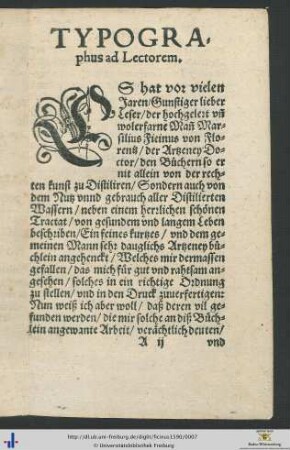 TYPOGRA-
phus ad Lectorem.
ES hat vor vielen
Jaren/Gunstiger lieber
Leser/der hochgelert vñ
wolerfarne Mañ Mar-
silius Ficinus von Flo-
rentz/ der Artzeney Do-
ctor/den Büchern so er
nit allein von der rech-
ten kunst zu Distiliren/ Sondern auch von
dem Nutz vnnd gebrauch aller Distilierten
Wassern / neben einem herrlichen schönen
Tractat / von gesundem vnd langem Leben
beschriben/Ein feines kurtzes / vnd dem ge-
meinen Mann sehr dauglichs Artzeney bü-
chlein angehenckt / Welches mir dermassen
gefallen / das mich für gut vnd rahtsam an-
gesehen / solches in ein richtige Ordnung
zu stellen/ vnd in den Druck zuuerfertigen:
Nun weiß ich aber woll / daß deren vil ge-
funden werden / die mir solche an diß Büch-
lein angewante Arbeit/ verächtlich deuten/
A ij vnd
http://dl.ub.uni-freiburg.de/diglit/ficinus1590/0007
© Universitätsbibliothek Freiburg
Baden-Württemberg